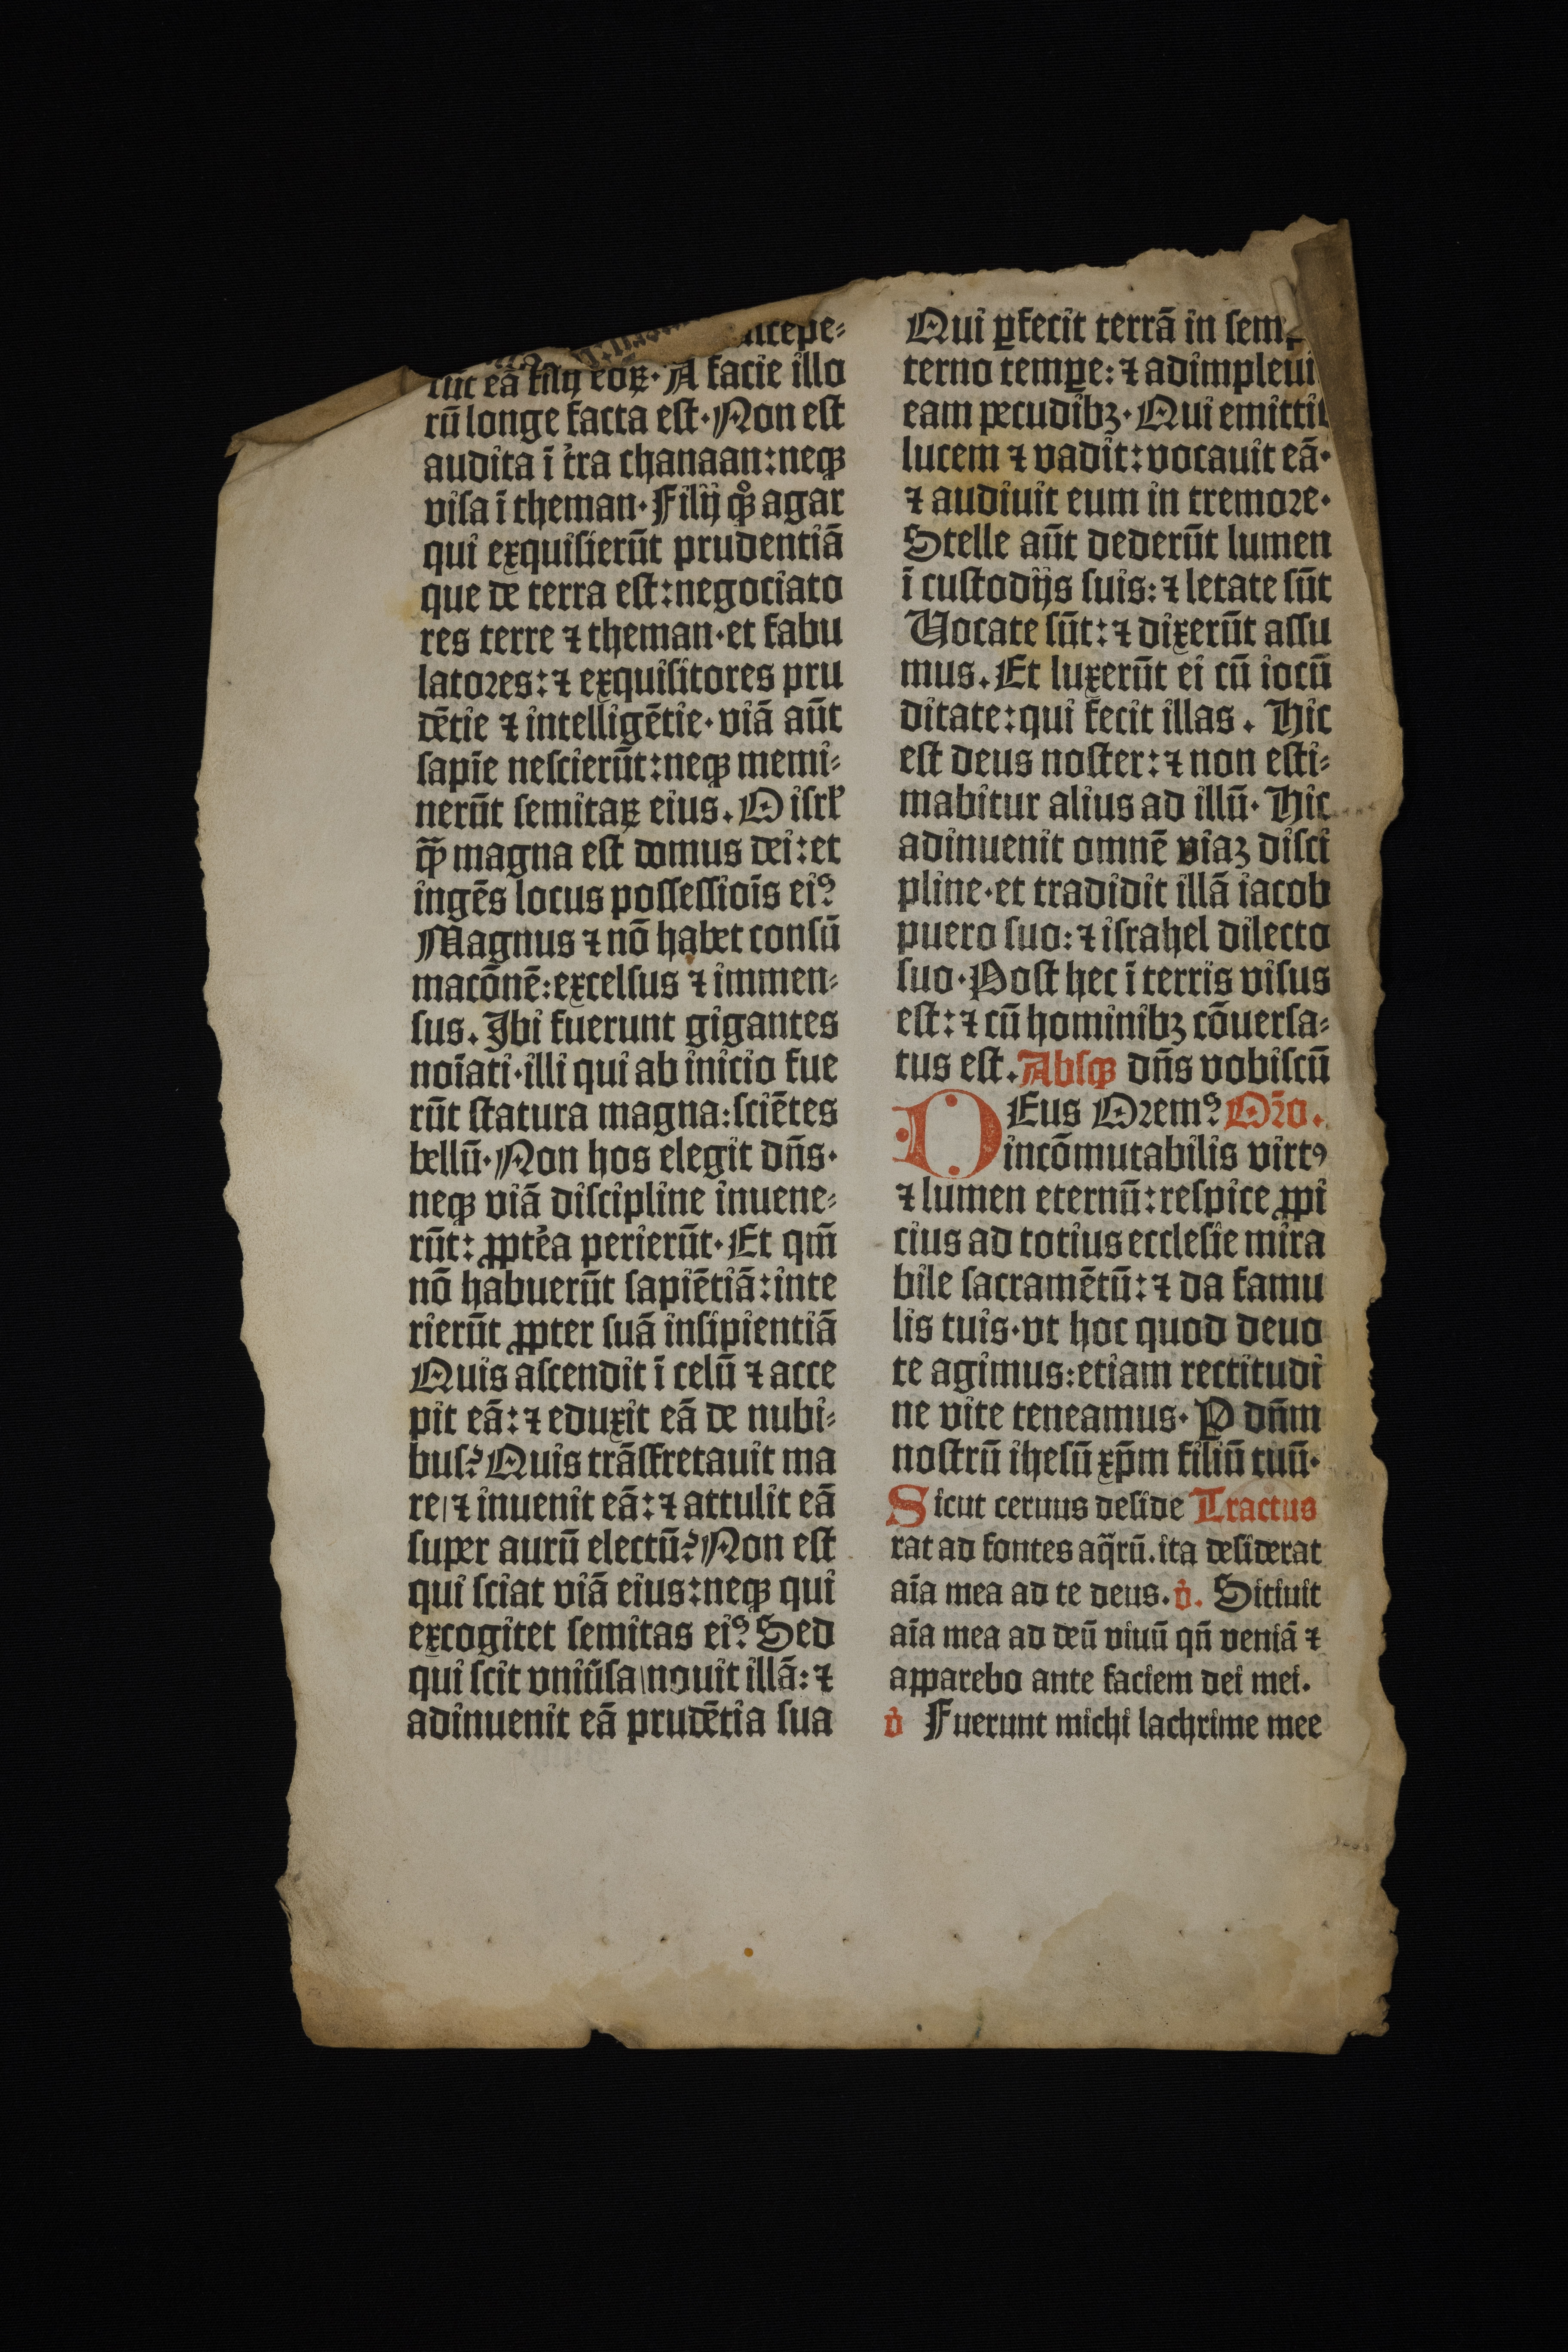 ſcepe⸗
rūt eā filij eoꝝ· A facie illo
rū longe facta eſt· Non eſt
audita ī t̉ra chanaan: neqꝫ
viſa ī theman· Filij qͦꝫ agar
qui exquiſierūt prudentiā
que de terra eſt: negociato
res terre ⁊ theman· et fabu
latoꝛes: ⁊ exquiſitores pru
dētie ⁊ intelligētie· viā aūt
ſapīe neſcierūt: neqꝫ memi⸗
nerūt ſemitaꝝ eius. O iſrł
qͣꝫ magna eſt domus dei: et
ingēs locus poſſeſſiōis eiꝰ?
Magnus ⁊ nō habet conſū
macōnē: excelſus ⁊ immen⸗
ſus. Ibi fuerunt gigantes
noīati· illi qui ab inicio fue
rūt ſtatura magna: ſciētes
bellū· Non hos elegit dn̄s·
neqꝫ viā diſcipline inuene⸗
rūt: ꝓpt̉ea perierūt· Et qm̄
nō habuerūt ſapiētiā: inte
rierūt ꝓpter ſuā inſipientiā
Quis aſcendit ī celū ⁊ acce
pit eā: ⁊ eduxit eā de nubi⸗
buſ? Quis trāſfretauit ma
re/ ⁊ inuenit eā: ⁊ attulit eā
ſuper aurū electū? Non eſt
qui ſciat viā eius: neqꝫ qui
excogitet ſemitas eiꝰ? Sed
qui ſcit vniūſa\ nouit illā: ⁊
adinuenit eā prudētia ſua
Qui ꝑfecit terrā in ſem
terno temꝑe: ⁊ adimpleui
eam pecudibꝫ· Qui emittit
lucem ⁊ vadit: vocauit eā·
⁊ audiuit eum in tremoꝛe·
Stelle aūt dederūt lumen
ī cuſtodijs ſuis: ⁊ letate ſūt
Uocate ſūt: ⁊ dixerūt aſſu
mus. Et luxerūt ei cū iocū
ditate: qui fecit illas. Hic
eſt deus noſter: ⁊ non eſti⸗
mabitur alius ad illū· Hic
adinuenit omnē viaꝫ diſci
pline· et tradidit illā iacob
puero ſuo: ⁊ iſrahel dilecto
ſuo· Poſt hec ī terris viſus
eſt: ⁊ cū hominibꝫ cōuerſa⸗
tus eſt. Abſqꝫ dn̄s vobiſcū
DEus Oꝛemꝰ Oꝛ̄o.
incōmutabilis virtꝰ
⁊ lumen eternū: reſpice ꝓpi
cius ad totius eccleſie mira
bile ſacramētū: ⁊ da famu
lis tuis· vt hoc quod deuo
te agimus: etiam rectitudi
ne vite teneamus· P̲ dn̄m
noſtrū iheſū xp̄m filiū tuū·
Sicut ceruus deſide Tractus
rat ad fontes aq̈rū. ita deſiderat
aīa mea ad te deus. v̉. Sitiuit
aīa mea ad deū viuū qn̄ veniā ⁊
apparebo ante faciem dei mei.
v̉ Fuerunt michi lachrime mee